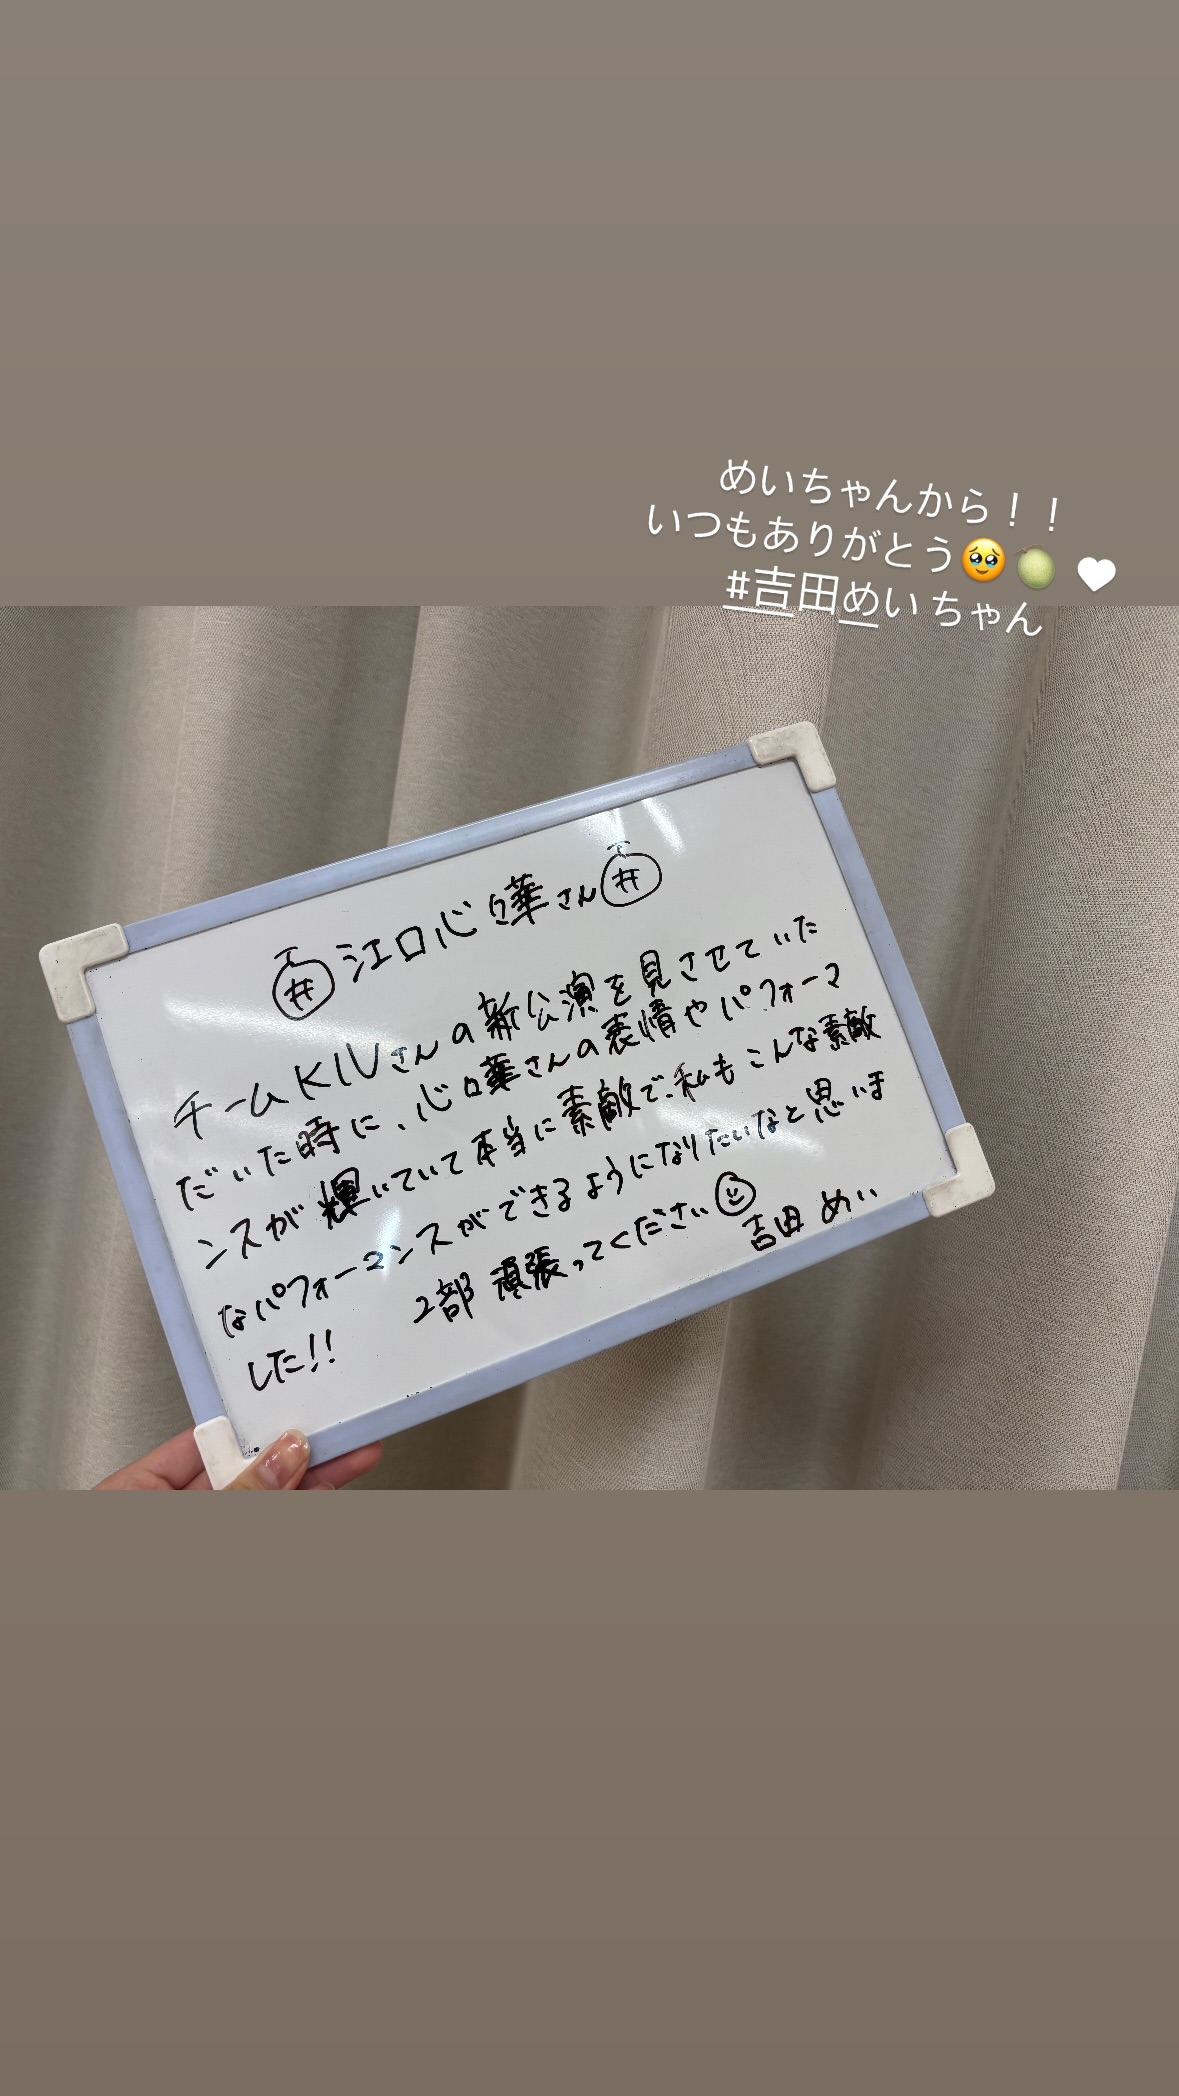 めいちゃんから！！
いつもありがとう🥹🍈🤍
#吉田めいちゃん
江口心々華さん
チームKⅣさんの新公演を見させていた
だいた時に、心々華さんの表情やパフォーマ
ンスが輝いていて本当に素敵で、私もこんな素敵
なパフォーマンスができるようになりたいなと思いま
した!!
2部 頑張ってください
吉田 めい